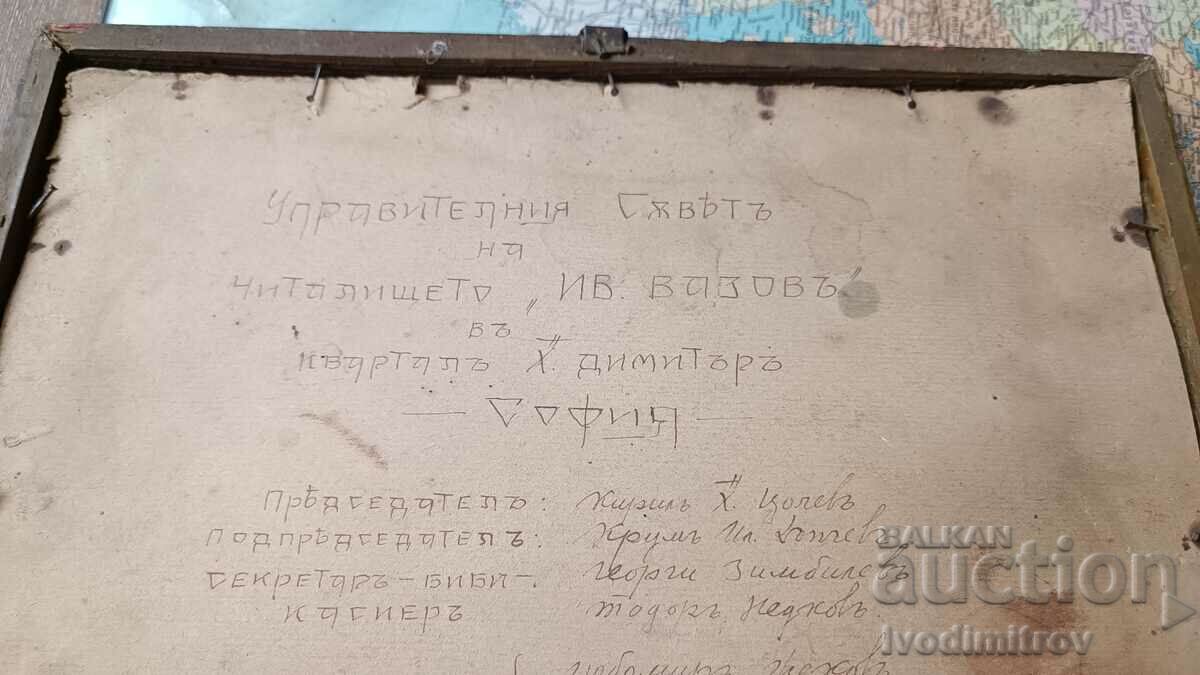 Управителния Съвѣтъ
на
Читалището „Ив. Вазовъ“
въ
кварталъ Х. Димитъръ
— София —
Прѣдседатель: Кирилъ Х. Цочевъ
Подпрѣдседатель: Крумъ Ил.
Секретаръ-биби-. Георги Зимбилевъ
Касиеръ Тодоръ Недковъ.
Любомиръ
BALKAN
auction
Ivodimitrov